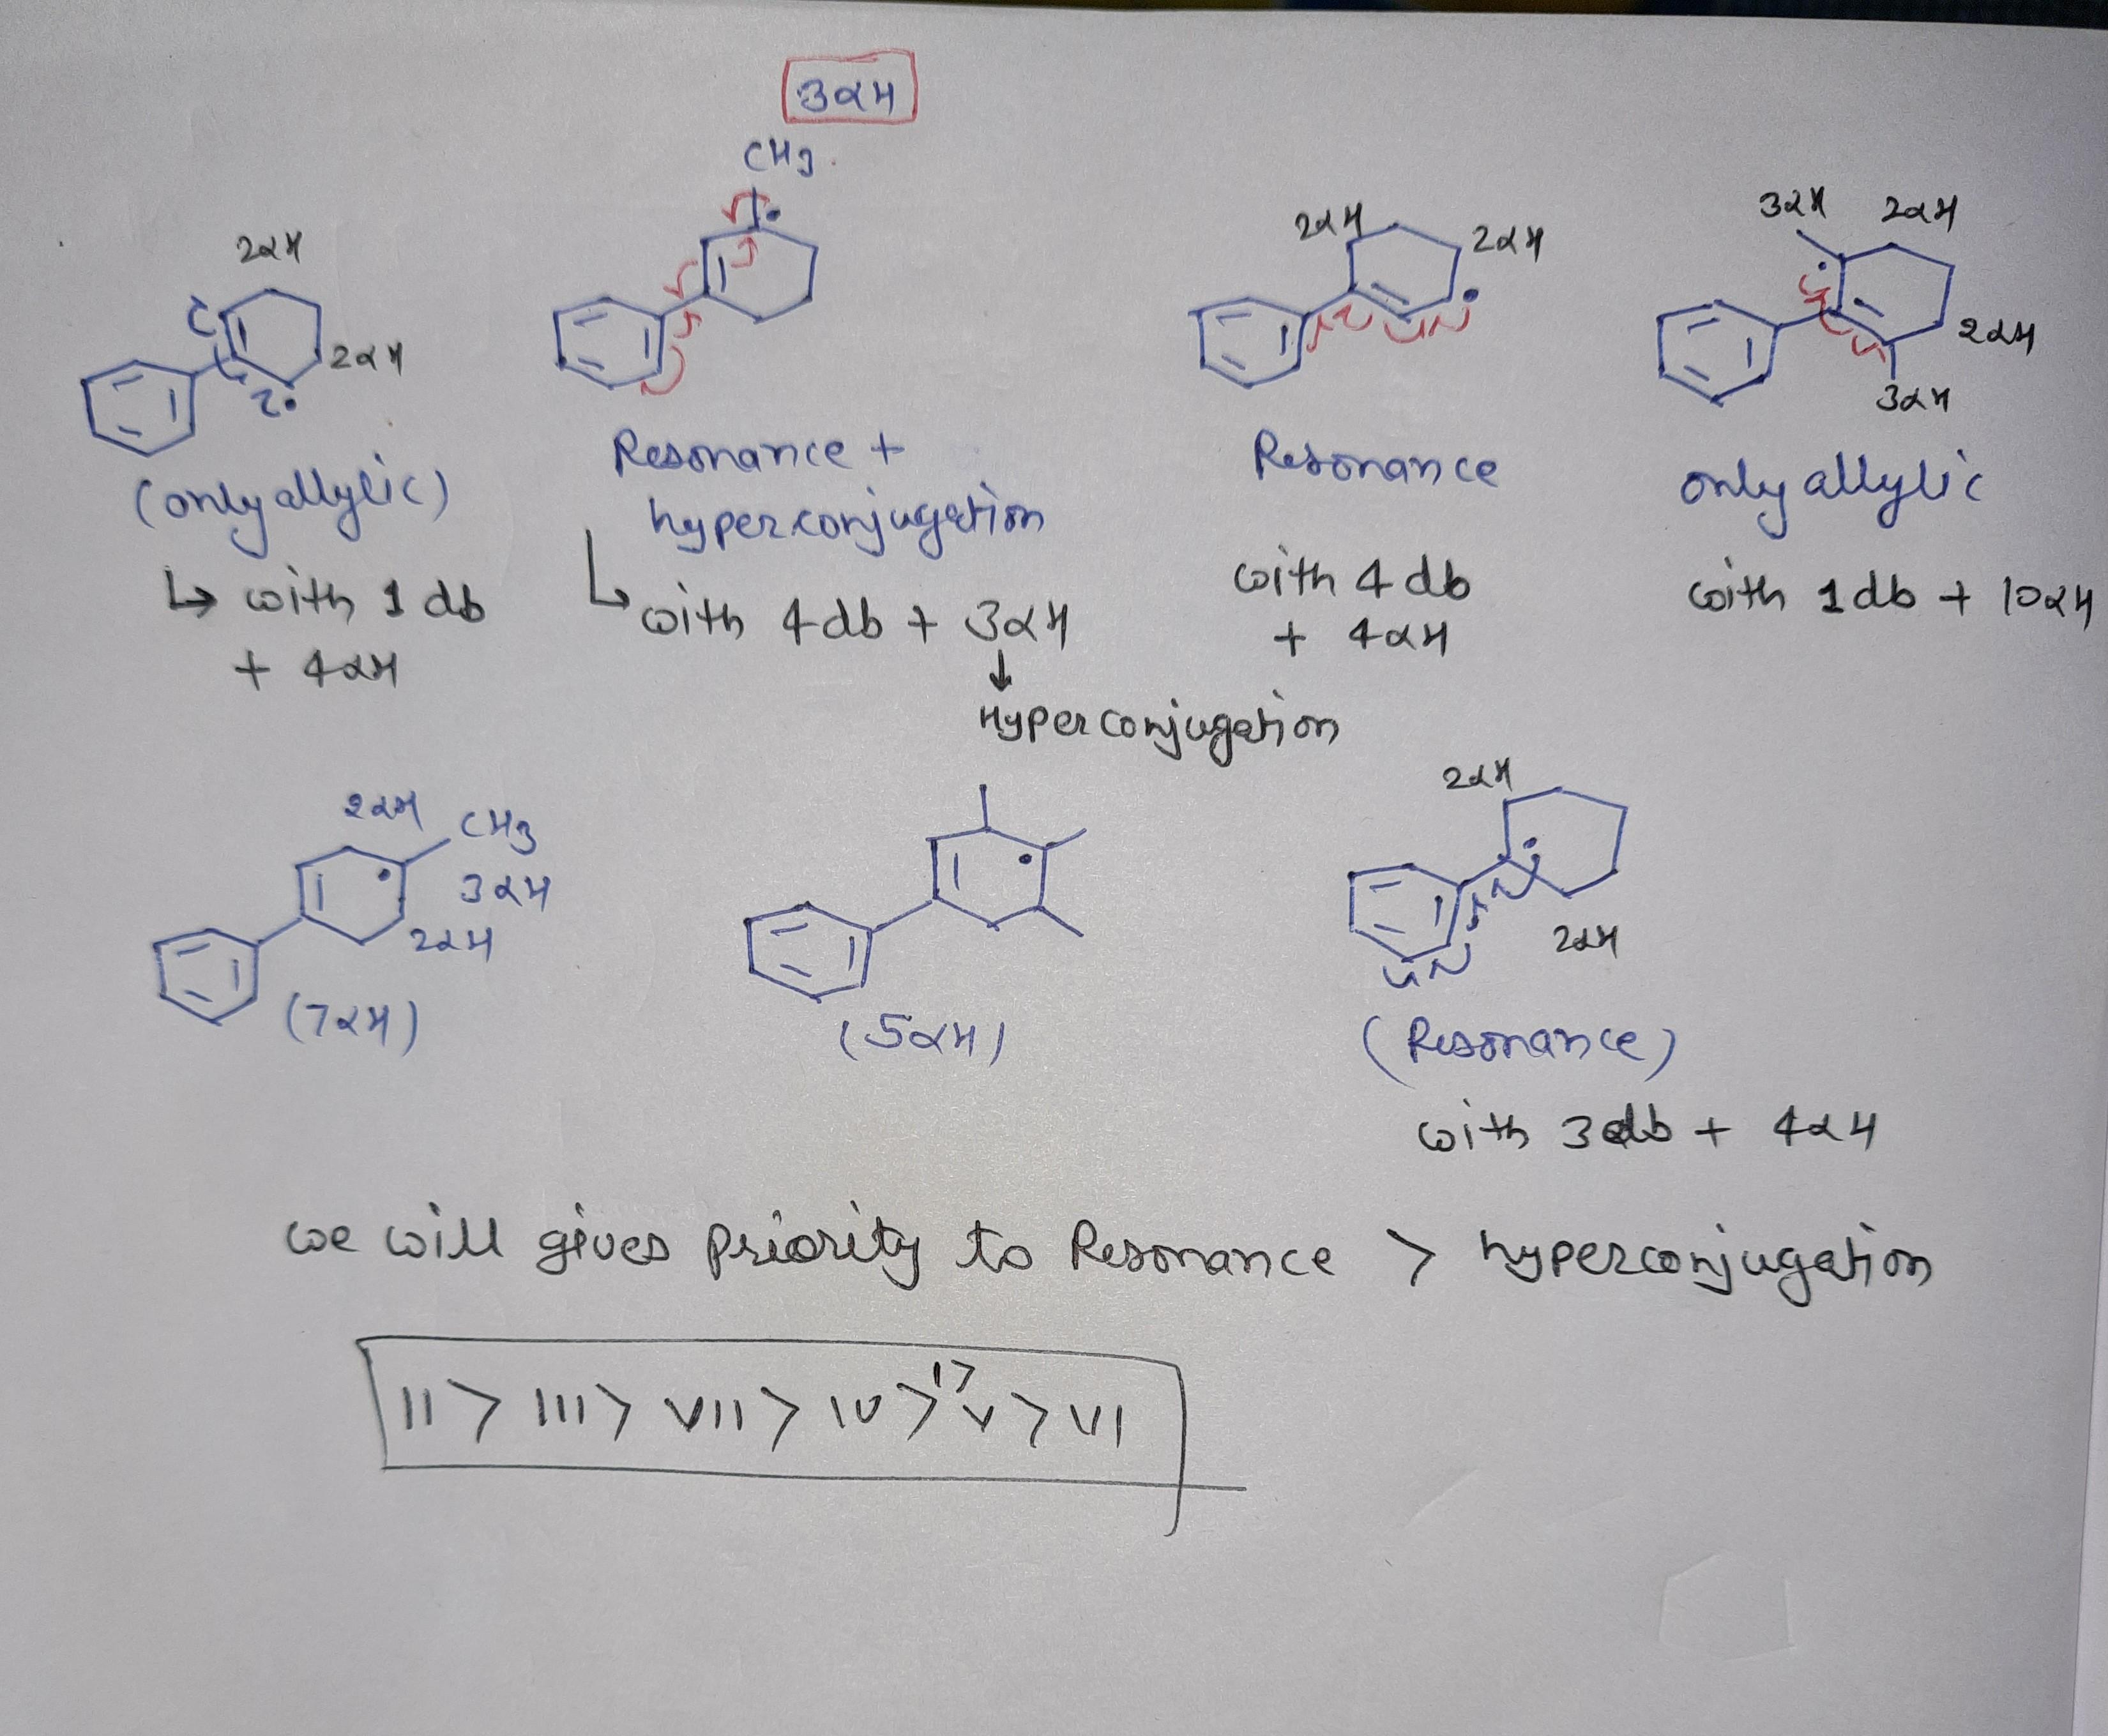 3αH
CH3.
2αH
2αH
2αH
2αH
3αH 2αH
2αH
3αH
(only allylic)
↳ with 1 db
+ 4αH
Resonance +
hyperconjugation
↳ with 4db + 3αH
↓
Hyperconjugation
Resonance
with 4 db
+ 4αH
only allylic
with 1db + 10αH
2αH CH3
3αH
2αH
(7αH)
(5αH)
2αH
2αH
(Resonance)
with 3db + 4αH
we will gives priority to Resonance > hyperconjugation
II > III > VII > IV > I > V > VI